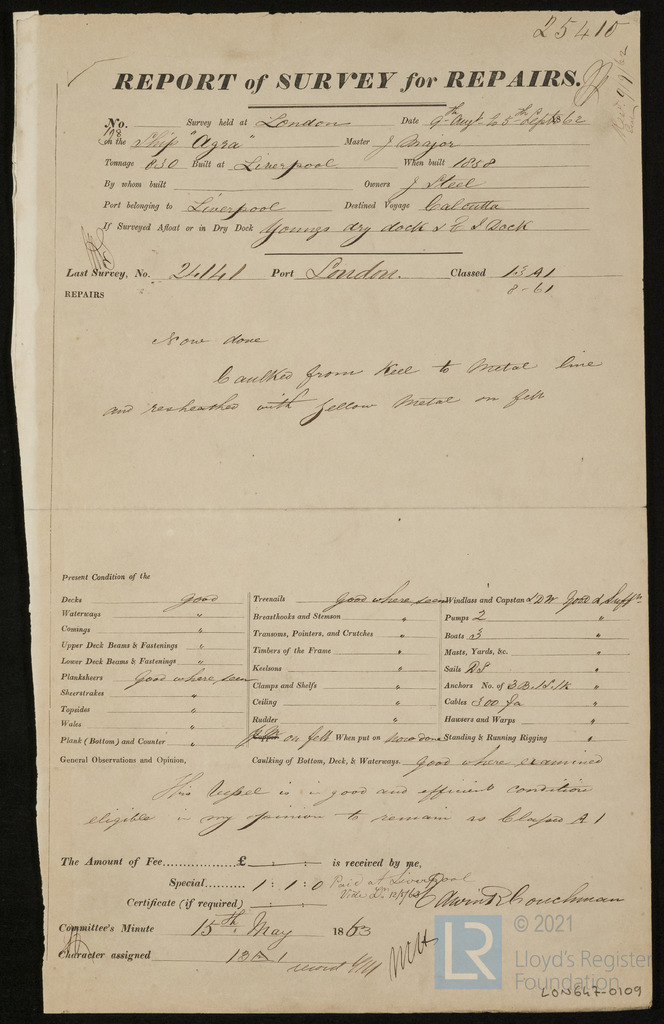 25410
REPORT of SURVEY for REPAIRS.
No. 198 Survey held at London Date 9th Augt to 5th Sept 1862
on the Ship "Agra" Master J Major
Tonnage 630 Built at Liverpool When built 1858
By whom built Owners J Steel
Port belonging to Liverpool Destined Voyage Calcutta
If Surveyed Afloat or in Dry Dock Youngs dry dock & E I Dock
Last Survey, No. 24141 Port London. Classed 13 A1
8-61
REPAIRS
Now done
Caulked from Keel to Metal line
and resheathed with Yellow Metal on felt
Present Condition of the
Decks good
Waterways "
Comings "
Upper Deck Beams & Fastenings "
Lower Deck Beams & Fastenings "
Planksheers Good where seen
Sheerstrakes "
Topsides "
Wales "
Plank (Bottom) and Counter "
Treenails Good where seen
Breasthooks and Stemson "
Transoms, Pointers, and Crutches "
Timbers of the Frame "
Keelsons "
Clamps and Shelfs "
Ceiling "
Rudder "
on felt When put on now done
Windlass and Capstan Good & Suff
Pumps 2 "
Boats 3 "
Masts, Yards, &c. "
Sails "
Anchors No. of 3 B, 1 S, 1 K "
Cables 300 fa "
Hawsers and Warps "
Standing & Running Rigging "
General Observations and Opinion, Caulking of Bottom, Deck, & Waterways. Good where examined
This Vessel is in good and efficient condition
eligible in my opinion to remain as Classed A 1
The Amount of Fee £ : : is received by me,
Special 1 : 1 : 0 Paid at Liverpool
Certificate (if required) : : Vide Lr 12/5/63
Edwin R Couchman
Committee's Minute 15th May 1863
Character assigned 13 A 1
record
© 2021
LR
Lloyd's Register
Foundation
LON647-0109